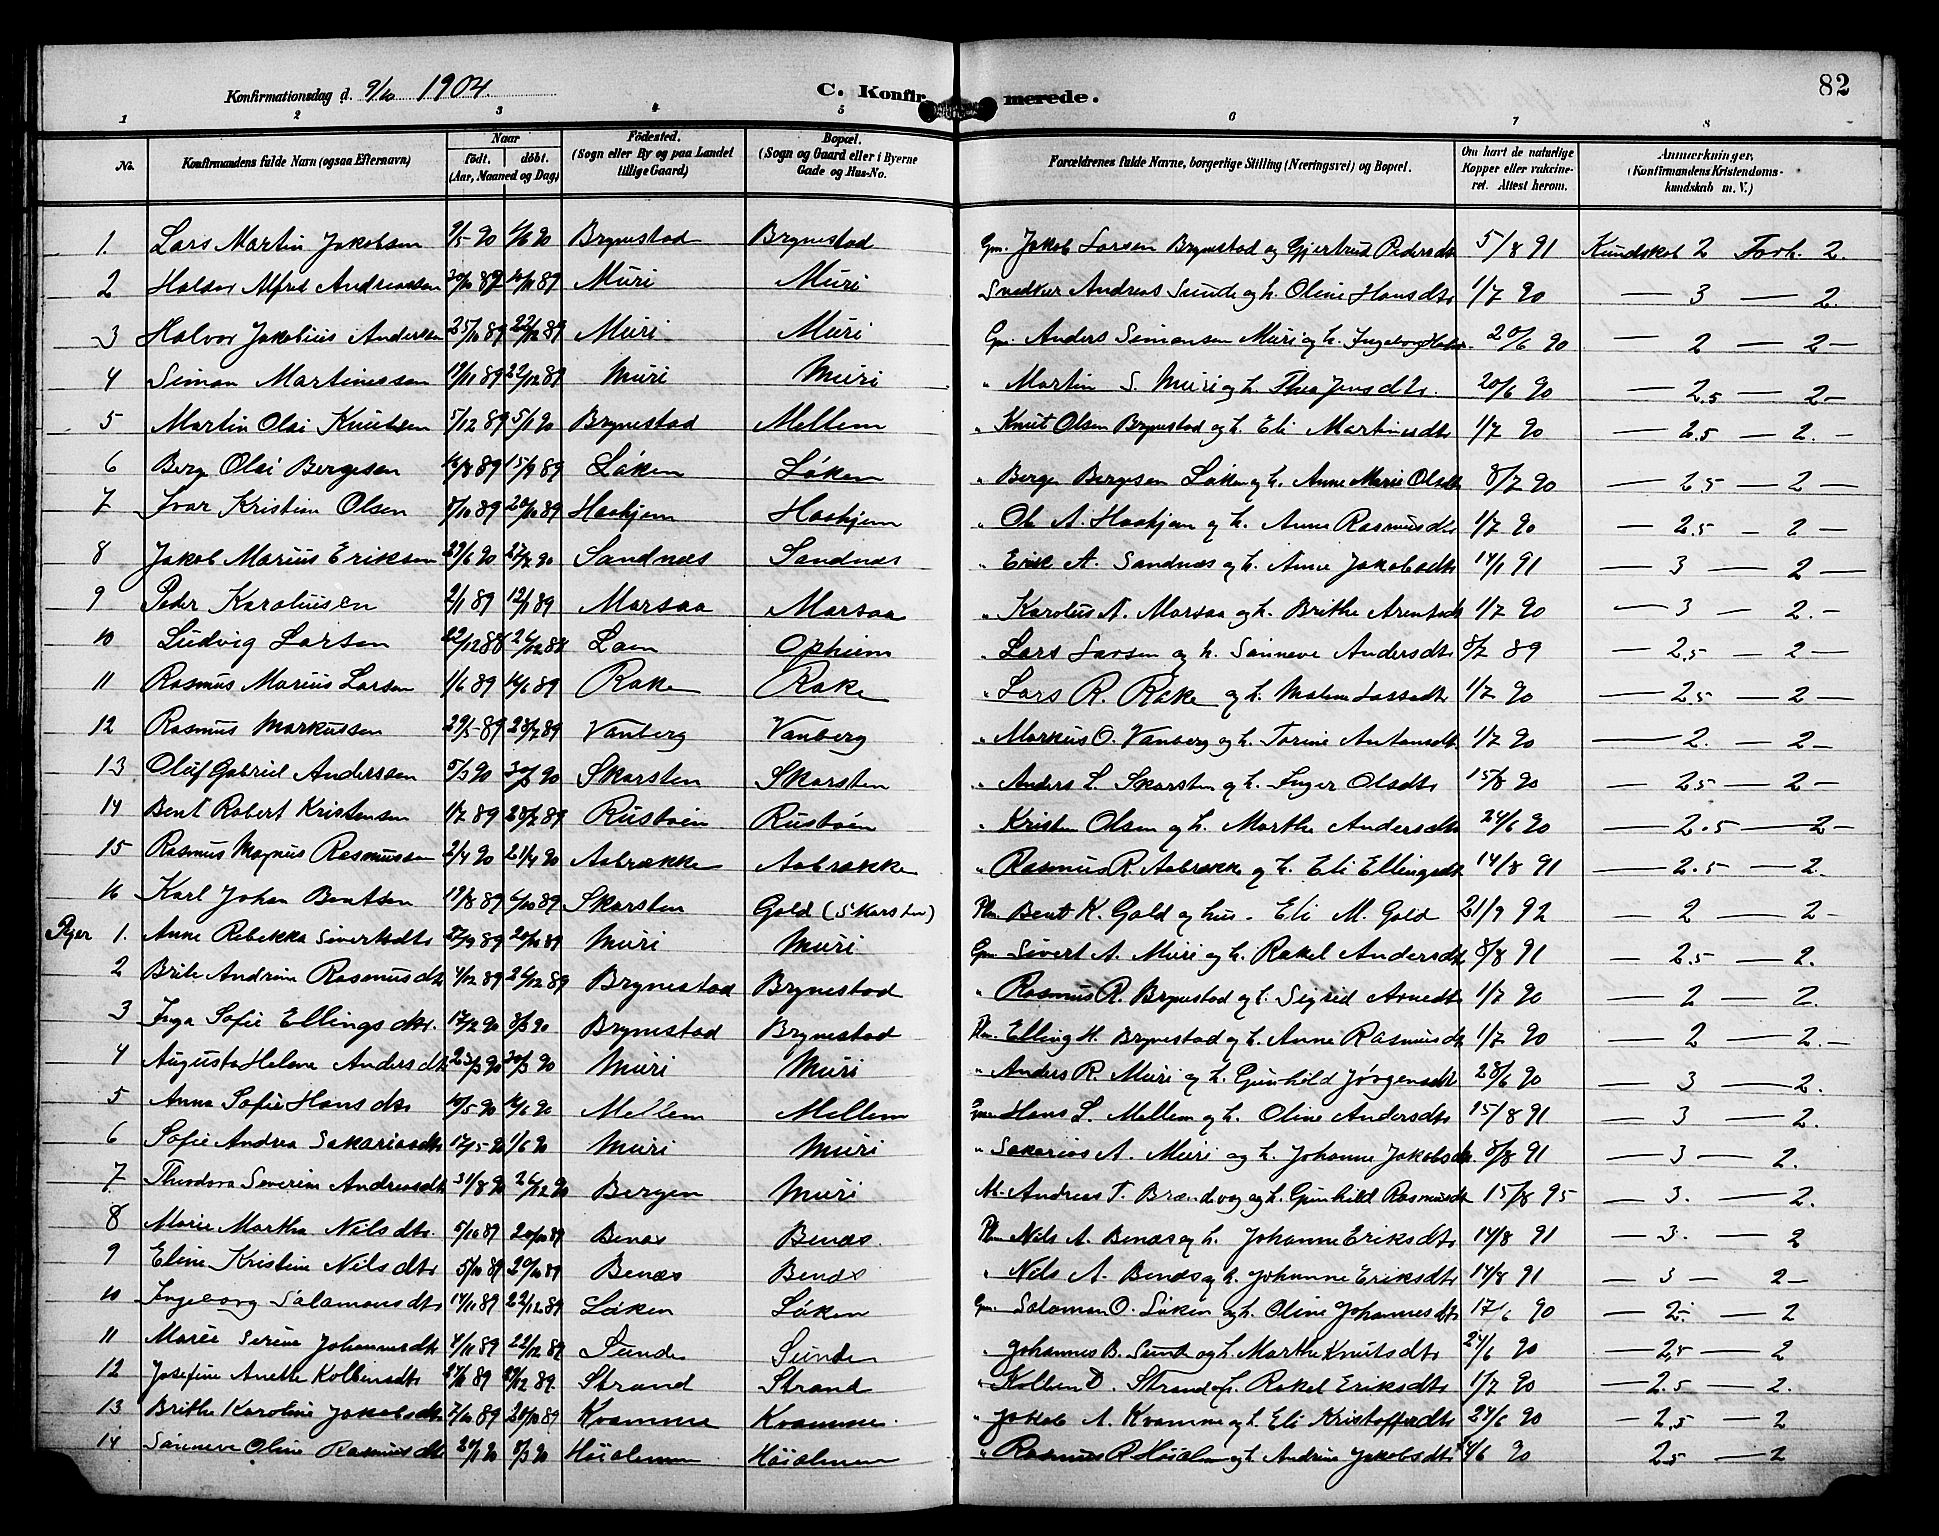 82
Konfirmationsdag d. 9/10 1904. C. Konfirmerede.
1 2 3 4 5 6 7 8
No. Konfirmandens fulde Navn (ogsaa Efternavn) Naar født. døbt. (Aar, Maaned og Dag) Fødested. (Sogn eller By og paa Landet tillige Gaard) Bopæl. (Sogn og Gaard eller i Byerne Gade og Hus-No. Forældrenes fulde Navne, borgerlige Stilling (Næringsvei) og Bopæl. Om havt de naturlige Kopper eller vakcineret. Attest herom. Anmærkninger, (Konfirmandens Kristendomskundskab m. V.)
1. Lars Martin Jakobsen 9/5 90 90 Brynestad Brynestad Gm. Jakob Larsen Brynestad og Gjertrud Pedersdt 5/8 91 Kundskab 2 Forh. 2.
2 Haldor Alfred Andreassen 89 89 Muri Muri Snedker Andreas Sunde og h. Oline Hansdtr 1/7 90 — 3 — 2.
3 Halvor Jakobius Andersen 25/10 89 22/12 89 Muri Muri Gm. Anders Simonsen Muri og h. Ingeborg 20/6 90 — 2 — 2 —
4 Simon Martinussen 19/11 89 22/12 89 Muri Muri " Martin S. Muri og h. Thea Jensdtr. 20/6 90 — 2.5 — 2 —
5 Martin Olai Knutsen 5/12 89 5/1 90 Brynestad Mellem " Knut Olsen Brynestad og h. Eli Martinusdtr 1/7 90 — 2.5 — 2. —
6 Berge Olai Bergesen 16/8 89 15/9 89 Løken Løken " Berge Bergesen Løken og h. Anne Marie Olsdtr 8/7 90 — 2.5 — 2 —
7 Ivar Kristian Olsen 8/10 89 20/10 89 Haahjem Haahjem " Ole A. Haahjem og h. Anne Rasmusdtr 1/7 90 — 2.5 — 2 —
8 Jakob Marius Eriksen 90 90 Sandnæs Sandnæs " Erik A. Sandnæs og h. Anne Jakobsdtr 14/1 91 — 3 — 2 —
9 Peder Karolusen 2/1 89 12/1 89 Marsaa Marsaa " Karolus N. Marsaa og h. Brithe Arentsdt 1/7 90 — 3 — 2. —
10 Ludvig Larsen 22/12 88 26/12 88 Lam Ophiem " Lars Larsen og h. Sønneve Andersdtr 8/7 89 — 2.5 — 2 —
11 Rasmus Marius Larsen 1/6 89 16/6 89 Rake Rake " Lars R. Rake og h. Malene Lassedtr 1/7 90 — 2.5 — 2 —
12 Rasmus Markussen 29/5 89 28/7 89 Vanberg Vanberg " Markus O. Vanberg og h. Torine Antonsdt 1/7 90 — 2. — 2 —
13 Oluf Gabriel Anderssen 5/3 90 30/3 90 Skarsten Skarsten " Anders L. Skarsten og h. Inger Olsdtr 15/8 90 — 2.5 — 2 —
14 Bent Robert Kristensen 1/7 89 28/7 89 Rustøen Rustøen " Kristen Olsen og h. Marthe Andersdtr 24/6 90 — 2.5 — 2 —
15 Rasmus Magnus Rasmussen 2/4 90 21/4 90 Aabrække Aabrække " Rasmus R. Aabrække og h. Eli Ellingsdt 14/8 91 — 2.5 — 2.
16 Karl Johan Bentsen 19/8 89 6/10 89 Skarsten Gald (Skarsten) Plm Bent K. Gald og hus. Eli M. Gald 21/9 92 — 2 — 2 —
Piger 1. Anne Rebekka Sivertsdtr 27/9 89 20/10 89 Muri Muri Gm. Sivert A. Muri og h. Rakel Andersdt 8/8 91 — 2.5 — 2.
2 Brite Andrine Rasmusdtr 4/12 89 26/12 89 Brynestad Brynestad " Rasmus R. Brynestad og h. Sigrid Arnedt 1/7 90 — 2 — 2.
3 Inga Sofie Ellingsdtr. 17/2 90 8/3 90 Brynestad Brynestad Plm. Elling H. Brynestad og h. Anne Rasmusdtr 1/7 90 — 2 — 2. —
4 Augusta Helene Andersdt 23/3 90 30/3 90 Muri Muri " Anders R. Muri og h. Gunhild Jørgensdt 28/6 90 — 3 — 2.
5 Anna Sofie Hansdtr 10/5 90 16/6 90 Mellem Mellem Gm Hans L. Mellem og h. Oline Andersdtr 15/8 91 — 3 — 2.
6 Sofie Andrea Sakariasdt 17/5 90 1/6 90 Muri Muri " Sakarias A. Muri og h. Johanne Jakobsdt. 8/8 91 — 3 — 2.
7. Theodora Severine Andreasdt 31/8 90 26/12 90 Bergen Muri M. Andreas T. Brændvog og h. Gunhild Rasmusdt 15/8 95 — 3. — 2.
8 Marie Martha Nilsdtr 5/10 89 20/10 89 Benæs Benæs. Plm Nils A. Benæs og h. Johanne Eriksdtr 14/8 91 — 3. — 2
9 Eline Kristine Nilsdtr 5/10 89 20/10 89 Benæs Benæs " Nils A. Benæs og h. Johanne Eriksdtr 14/8 91 — 3 — 2 —
10 Ingeborg Salamonsdtr 14/11 89 22/12 89 Løken Løken Gm. Salamon O. Løken og h. Oline Johannesdtr 17/6 90 — 2. — 2
11 Marie Serine Johannesdtr 4/11 89 22/12 89 Sunde Sunde " Johannes B. Sunde og h. Marthe Knutsdtr 24/6 90 — 2.5 — 2
12 Josefine Anette Kolbensdtr 89 89. Strand Strand " Kolben D. Strand og h. Rakel Eriksdtr 1/7 90 — 2.5 — 2.
13 Brithe Karoline Jakobsdtr 7/10 89 20/10 89 Kvamme Kvamme " Jakob A. Kvamme og h. Eli Kristofferdtr 24/6 90 — 2.5 — 2
14 Sønneva Oline Rasmusdtr 20/1 90 8/3 90 Høialmen Høialmen " Rasmus R Høialm og h. Andrine Jakobsdtr 90 — 2.5 — 2